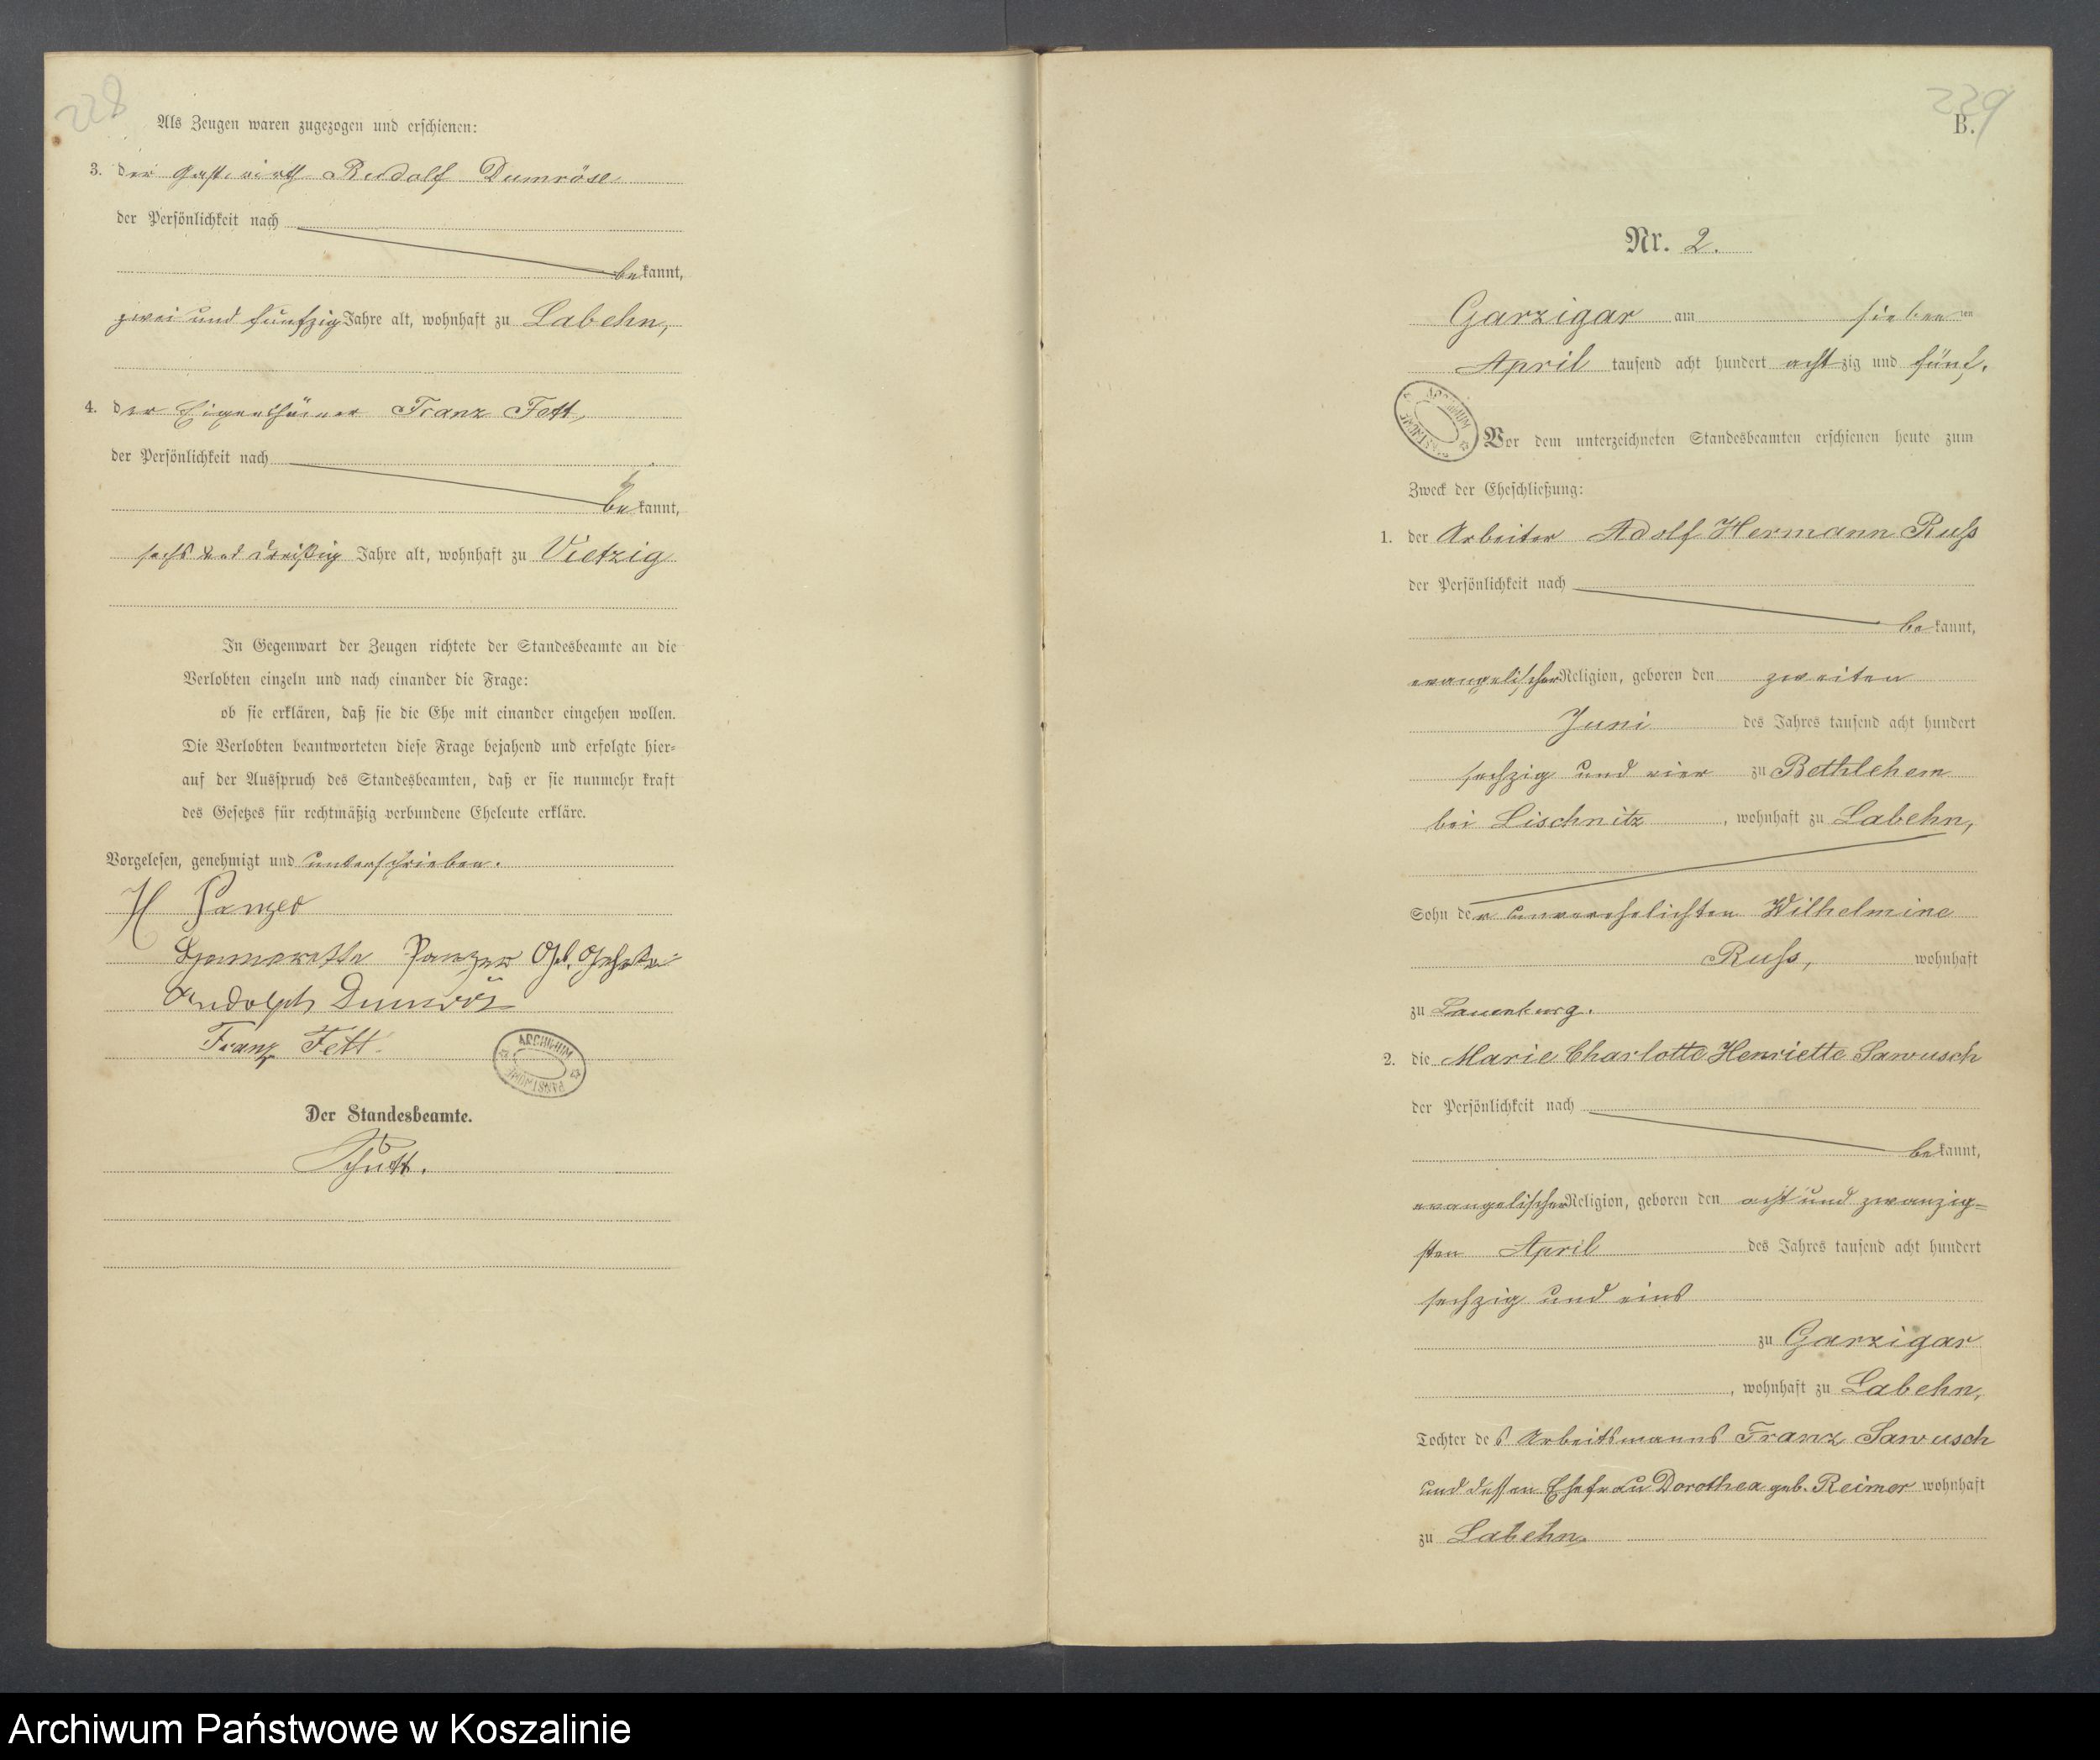 228
Als Zeugen waren zugezogen und erschienen:
3. der Gastwirth Rudolf Dumröse
der Persönlichkeit nach
bekannt,
zwei und fünfzig Jahre alt, wohnhaft zu Labehn,
4. der Eigenthümer Franz Fett,
der Persönlichkeit nach
bekannt,
sechs und dreißig Jahre alt, wohnhaft zu Vietzig
In Gegenwart der Zeugen richtete der Standesbeamte an die
Verlobten einzeln und nach einander die Frage:
ob sie erklären, daß sie die Ehe mit einander eingehen wollen.
Die Verlobten beantworteten diese Frage bejahend und erfolgte hier-
auf der Ausspruch des Standesbeamten, daß er sie nunmehr kraft
des Gesetzes für rechtmäßig verbundene Eheleute erkläre.
Vorgelesen, genehmigt und unterschrieben.
H Panzer
Panzer Geb.
Rudolph Dumrös
Franz Fett.
ARCHIWUM PAŃSTWOWE
Der Standesbeamte.
229
B.
Nr. 2.
Garzigar am siebenten
April tausend acht hundert achtzig und fünf.
ARCHIWUM PAŃSTWOWE
Vor dem unterzeichneten Standesbeamten erschienen heute zum
Zweck der Eheschließung:
1. der Arbeiter Adolf Hermann Ruß
der Persönlichkeit nach
bekannt,
evangelischer Religion, geboren den zweiten
Juni des Jahres tausend acht hundert
sechzig und vier zu Bethlehem
bei Lischnitz, wohnhaft zu Labehn,
Sohn der unverehelichten Wilhelmine
Ruß, wohnhaft
zu Lauenburg.
2. die Marie Charlotte Henriette Sawusch
der Persönlichkeit nach
bekannt,
evangelischer Religion, geboren den acht und zwanzig-
sten April des Jahres tausend acht hundert
sechzig und eins
zu Garzigar
, wohnhaft zu Labehn,
Tochter des Arbeitsmanns Franz Sawusch
und dessen Ehefrau Dorothea geb. Reimer wohnhaft
zu Labehn.
Archiwum Państwowe w Koszalinie